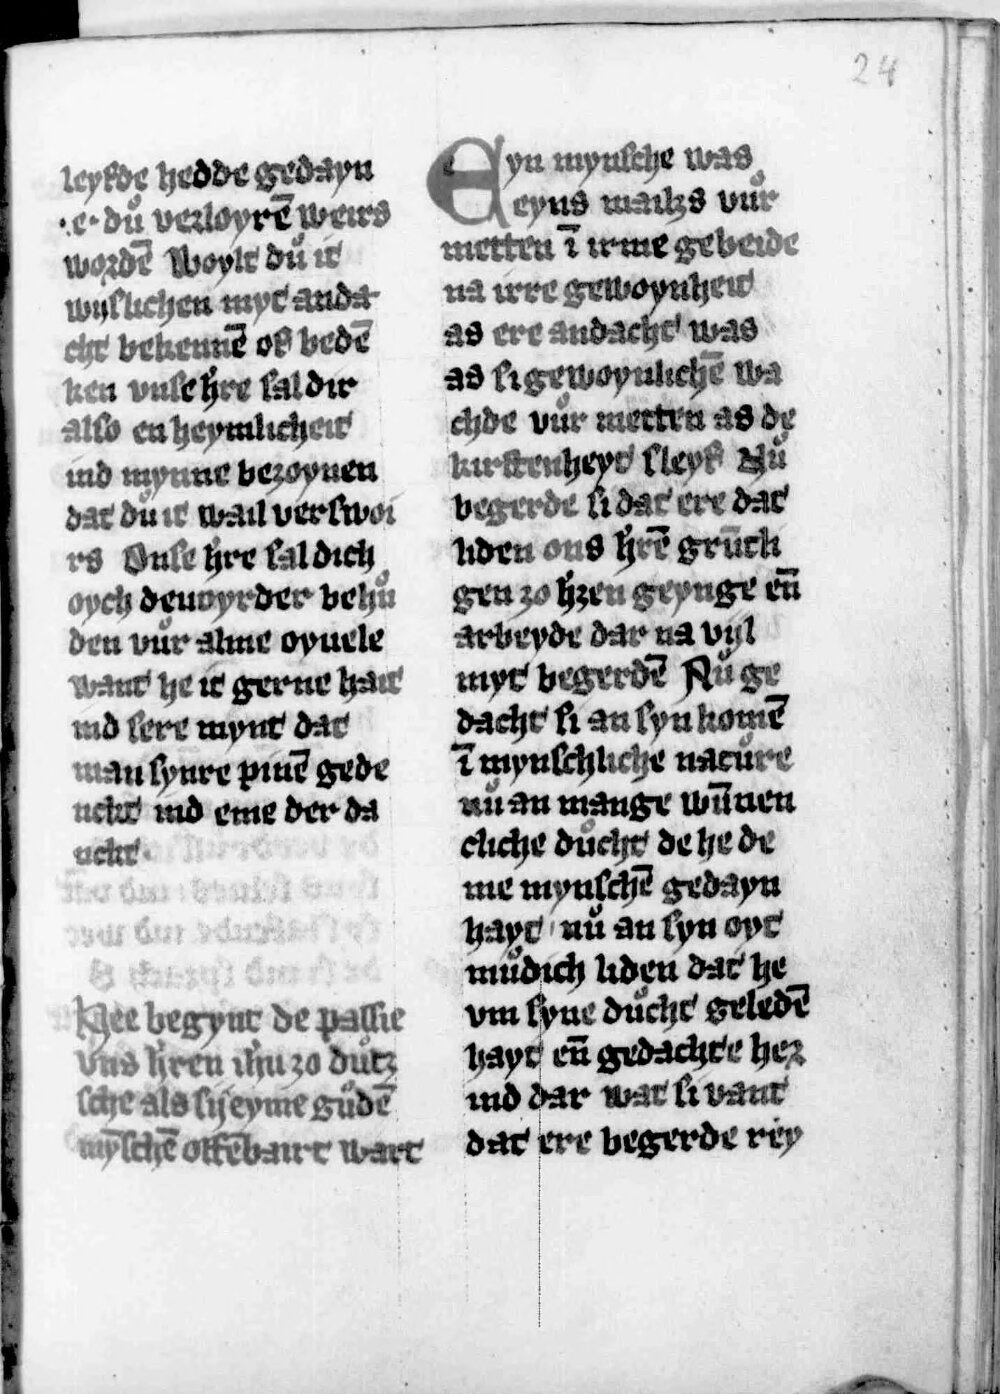 24
leyfde hedde gedayn
·e· dů verloyrē weirs
wordē Woylt dů it
wijslichen myt anda
cht bekennē of bedē
ken vnse h̄re sal dir
also en heymlicheit
ind mynne bezoynen
dat dů it wail verswoi
rs Vnse h̄re sal dich
oych denoyrder behů
den vůr alme oyuele
want he it gerne hait
ind sere mynt dat
man synre pinē gede
nckt ind eme der da
nckt
Hee begynt de passie
vns h̄ren ih̄u zo důtz
sche als sij eyme gůdē
mȳschē offēbairt wart
Eyn mynsche was
eyns mailzs vůr
metten ī irme gebeide
na irre gewoynheit
as ere andacht was
as si gewoynlichē wa
chde vůr metten as de
kirstenheyt sleyf Nů
begerde si dat ere dat
liden ons h̄rē grūtli
gen zo h̄zen geynge en̄
arbeyde dar na vijl
myt begerdē Nů ge
dacht si an syn komē
ī mynschliche natůre
nů an mange wūnen
cliche důcht de he de
me mynschē gedayn
hayt nů an syn oyt
můdich liden dat he
vm syne důcht geledē
hayt en̄ gedachte her
ind dar wat si vant
dat ere begerde rey